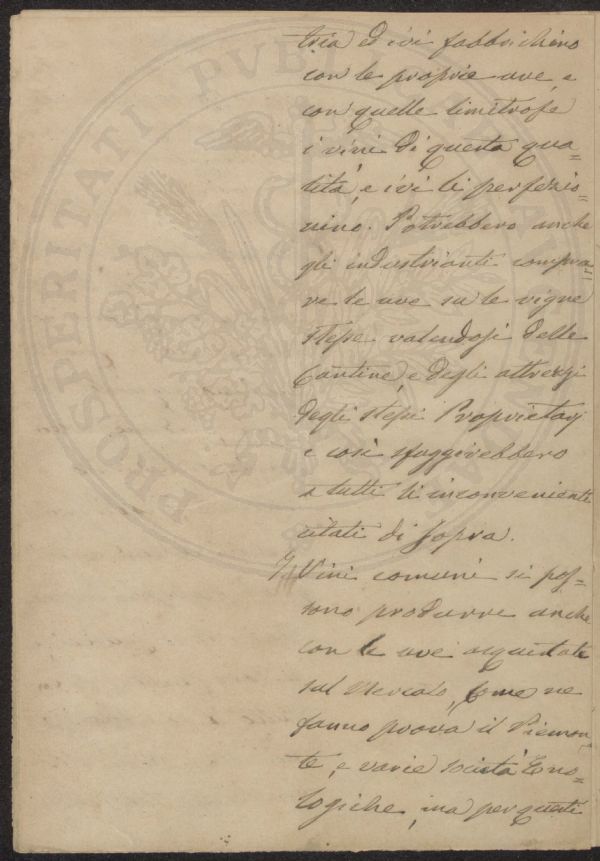 tria ed ivi fabbrichino
con le proprie uve, e
con quelle limitrofe
i vini di questa qua=
lità, e ivi li perfezio=
nino. Potrebbero anche
gli industrianti compra=
re le uve su le vigne
stesse valendosi delle
Cantine, e degli attrezzi
degli stessi Proprietarj
e così sfuggirebbero
a tutti li inconvenienti
citati di sopra.
I Vini comuni si pos=
sono produrre anche
con le uve acquistate
sul Mercato, come ne
fanno prova il Piemon=
te, e varie società Eno=
logiche, ma per questi
PROSPERITATI PVBLICAE